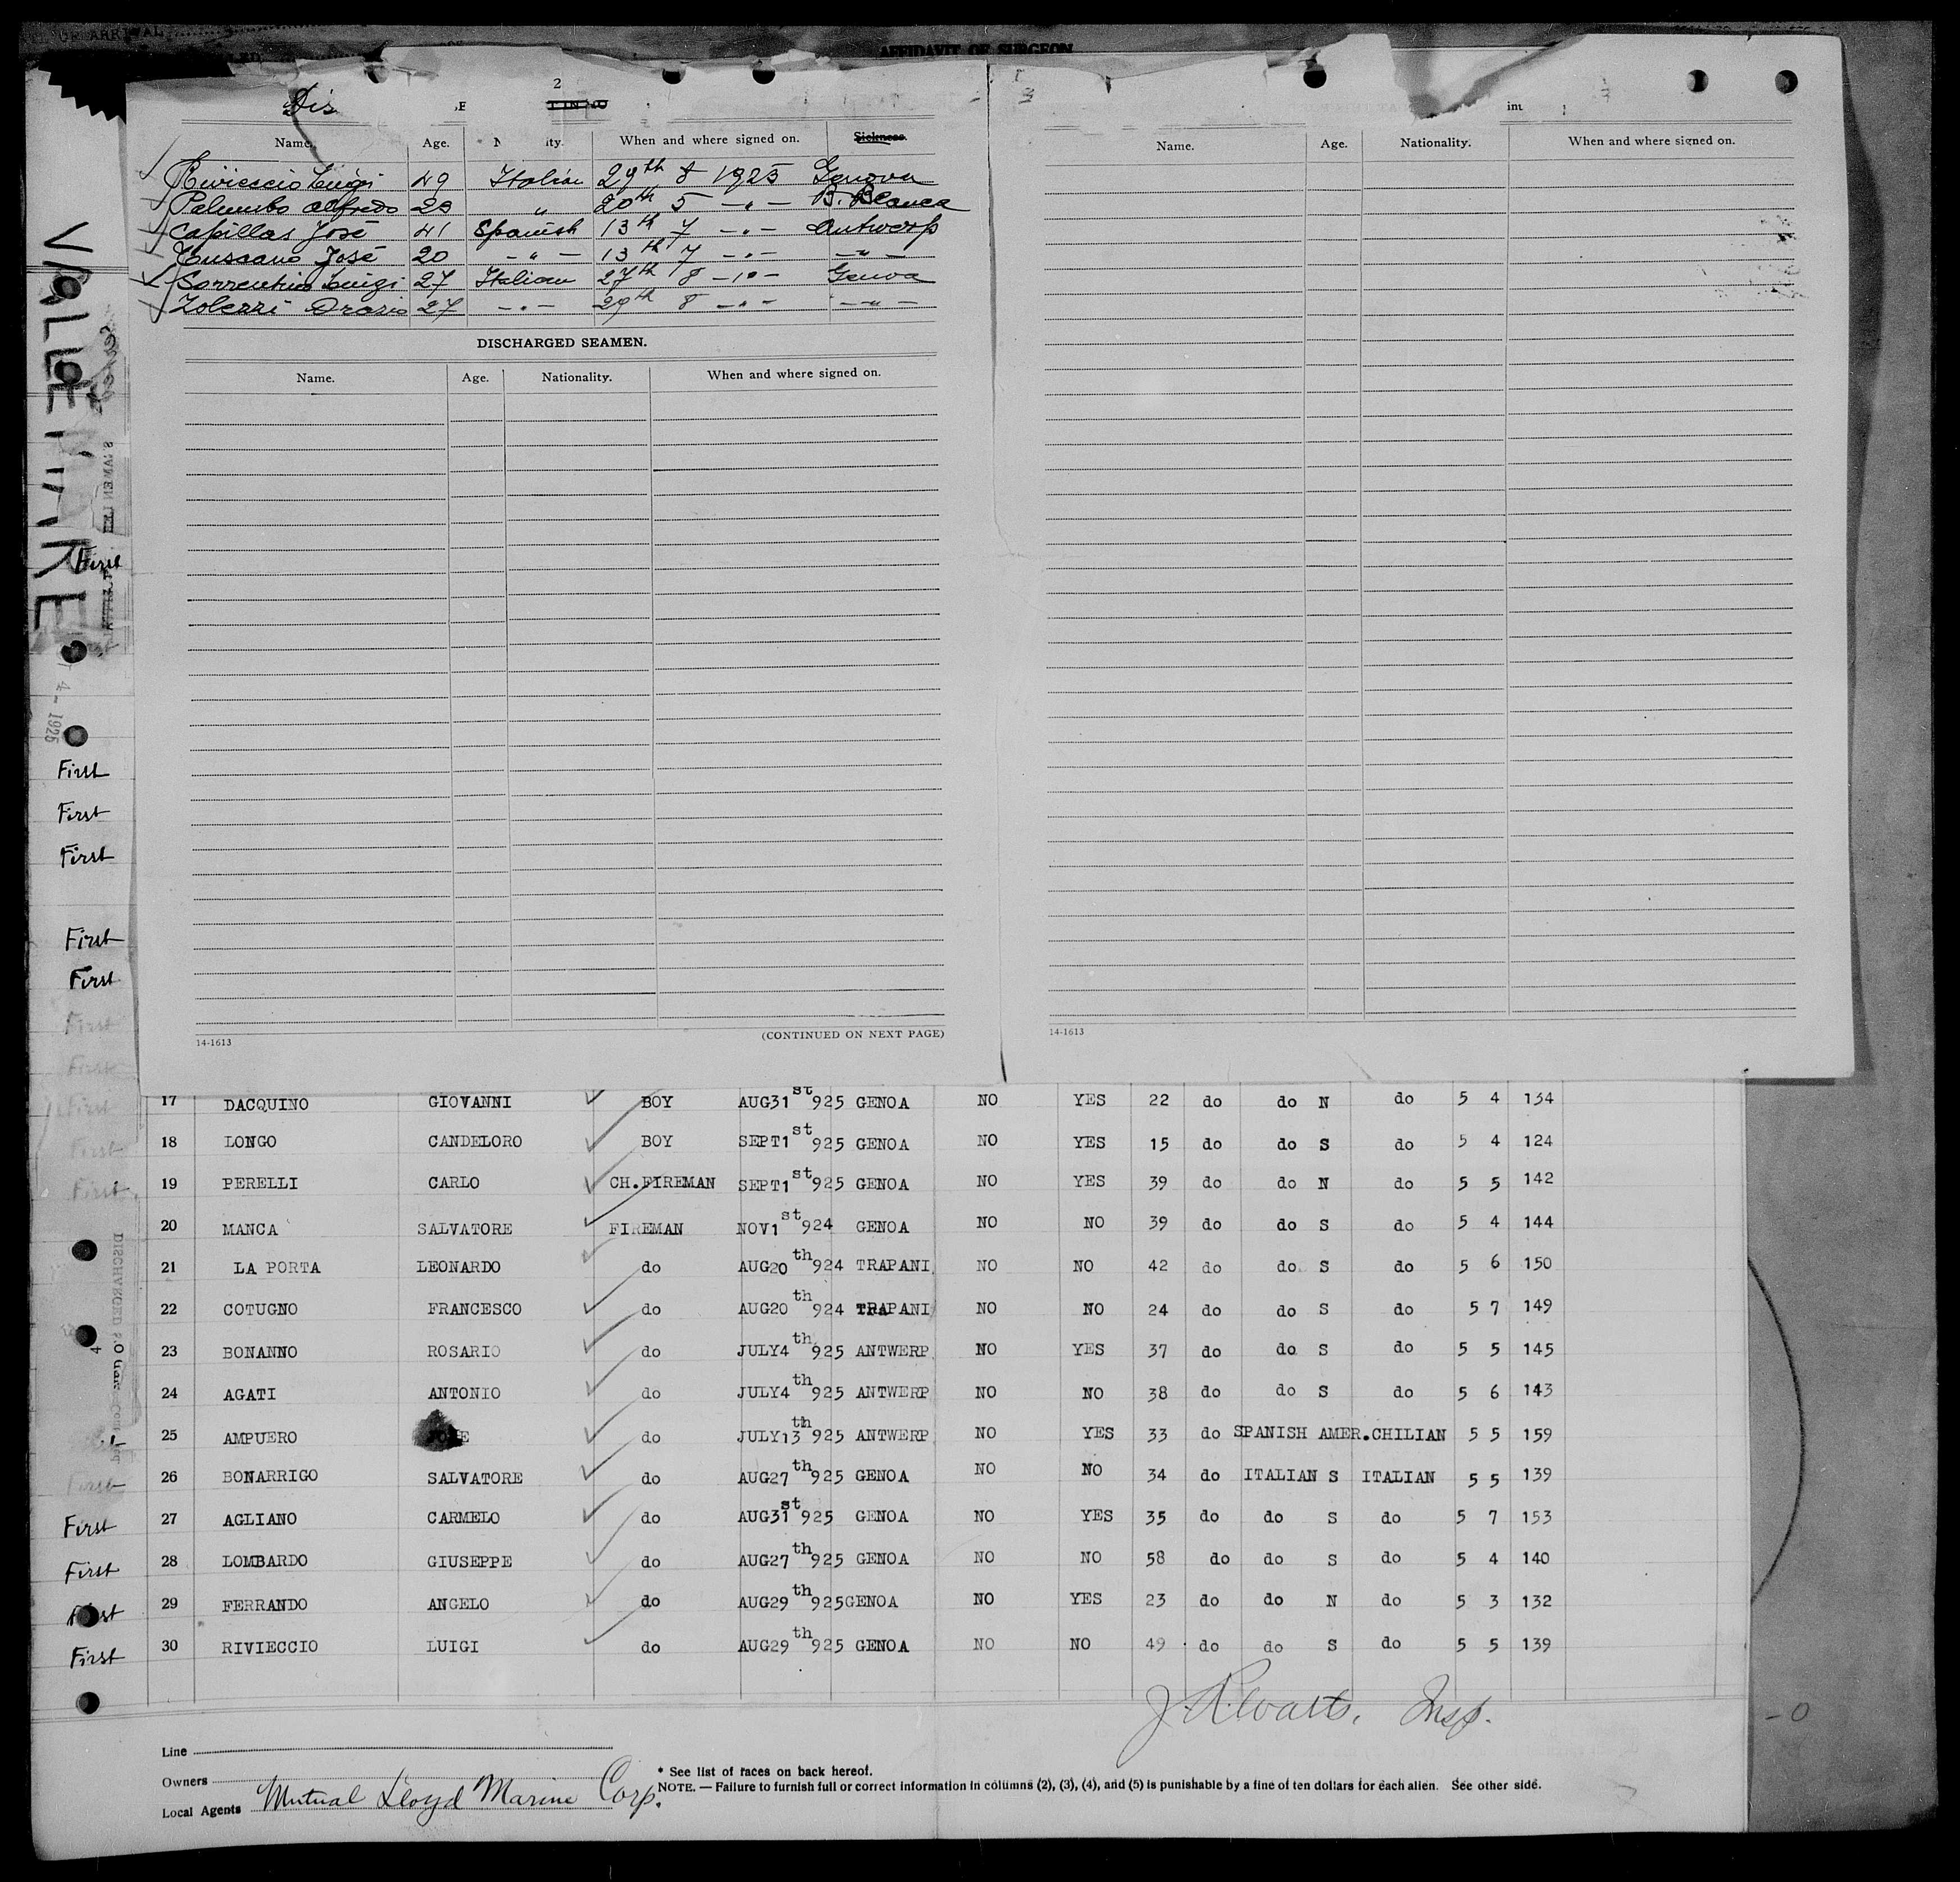 AFFIDAVIT OF SURGEON
2
Dis
Name. Age. When and where signed on. Sickness.
Rivieccio Luigi 49 Italian 29th 8 1925 Genova
Palumbo Alfredo 23 " 20th 5 -"- B. Blanca
Capillas José 41 Spanish 13th 7 -"- Antwerp
José 20 -"- 13th 7 -"- -"-
Sorrentino Luigi 27 Italian 27th 8 -"- Genova
Orazio 27 -"- 29th 8 -"- -"-
DISCHARGED SEAMEN.
Name. Age. Nationality. When and where signed on.
(CONTINUED ON NEXT PAGE)
14-1613
Name. Age. Nationality. When and where signed on.
14-1613
4 - 1925
First
First
First
First
First
First
17 DACQUINO GIOVANNI BOY AUG31st 925 GENOA NO YES 22 do do N do 5 4 134
18 LONGO CANDELORO BOY SEPT1st 925 GENOA NO YES 15 do do S do 5 4 124
19 PERELLI CARLO CH.FIREMAN SEPT1st 925 GENOA NO YES 39 do do N do 5 5 142
20 MANCA SALVATORE FIREMAN NOV1st 924 GENOA NO NO 39 do do S do 5 4 144
21 LA PORTA LEONARDO do AUG20th 924 TRAPANI NO NO 42 do do S do 5 6 150
22 COTUGNO FRANCESCO do AUG20th 924 TRAPANI NO NO 24 do do S do 5 7 149
23 BONANNO ROSARIO do JULY4th 925 ANTWERP NO YES 37 do do S do 5 5 145
24 AGATI ANTONIO do JULY4th 925 ANTWERP NO NO 38 do do S do 5 6 143
25 AMPUERO do JULY13th 925 ANTWERP NO YES 33 do SPANISH AMER.CHILIAN 5 5 159
First 26 BONARRIGO SALVATORE do AUG27th 925 GENOA NO NO 34 do ITALIAN S ITALIAN 5 5 139
First 27 AGLIANO CARMELO do AUG31st 925 GENOA NO YES 35 do do S do 5 7 153
First 28 LOMBARDO GIUSEPPE do AUG27th 925 GENOA NO NO 58 do do S do 5 4 140
First 29 FERRANDO ANGELO do AUG29th 925GENOA NO YES 23 do do N do 5 3 132
First 30 RIVIECCIO LUIGI do AUG29th 925 GENOA NO NO 49 do do S do 5 5 139
Insp.
Line
Owners
Local Agents Mutual Lloyd Marine Corp.
* See list of races on back hereof.
NOTE. — Failure to furnish full or correct information in columns (2), (3), (4), and (5) is punishable by a fine of ten dollars for each alien. See other side.